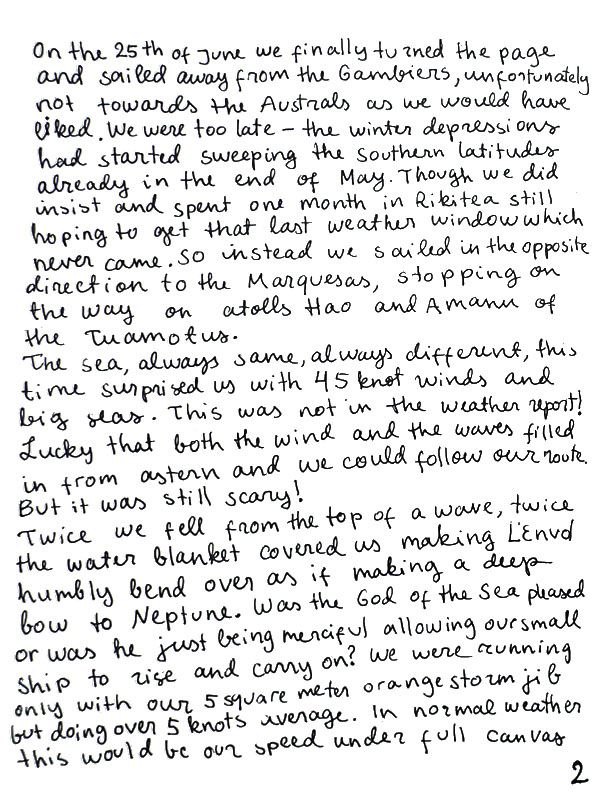 On the 25th of June we finally turned the page
and sailed away from the Gambiers, unfortunately
not towards the Australs as we would have
liked. We were too late – the winter depressions
had started sweeping the southern latitudes
already in the end of May. Though we did
insist and spent one month in Rikitea still
hoping to get that last weather window which
never came. So instead we sailed in the opposite
direction to the Marquesas, stopping on
the way on atolls Hao and Amanu of
the Tuamotus.
The sea, always same, always different, this
time surprised us with 45 knot winds and
big seas. This was not in the weather report!
Lucky that both the wind and the waves filled
in from astern and we could follow our route.
But it was still scary!
Twice we fell from the top of a wave, twice
the water blanket covered us making L'Envol
humbly bend over as if making a deep
bow to Neptune. Was the God of the Sea pleased
or was he just being merciful allowing our small
ship to rise and carry on? We were running
only with our 5 square meter orange storm jib
but doing over 5 knots average. In normal weather
this would be our speed under full canvas
2